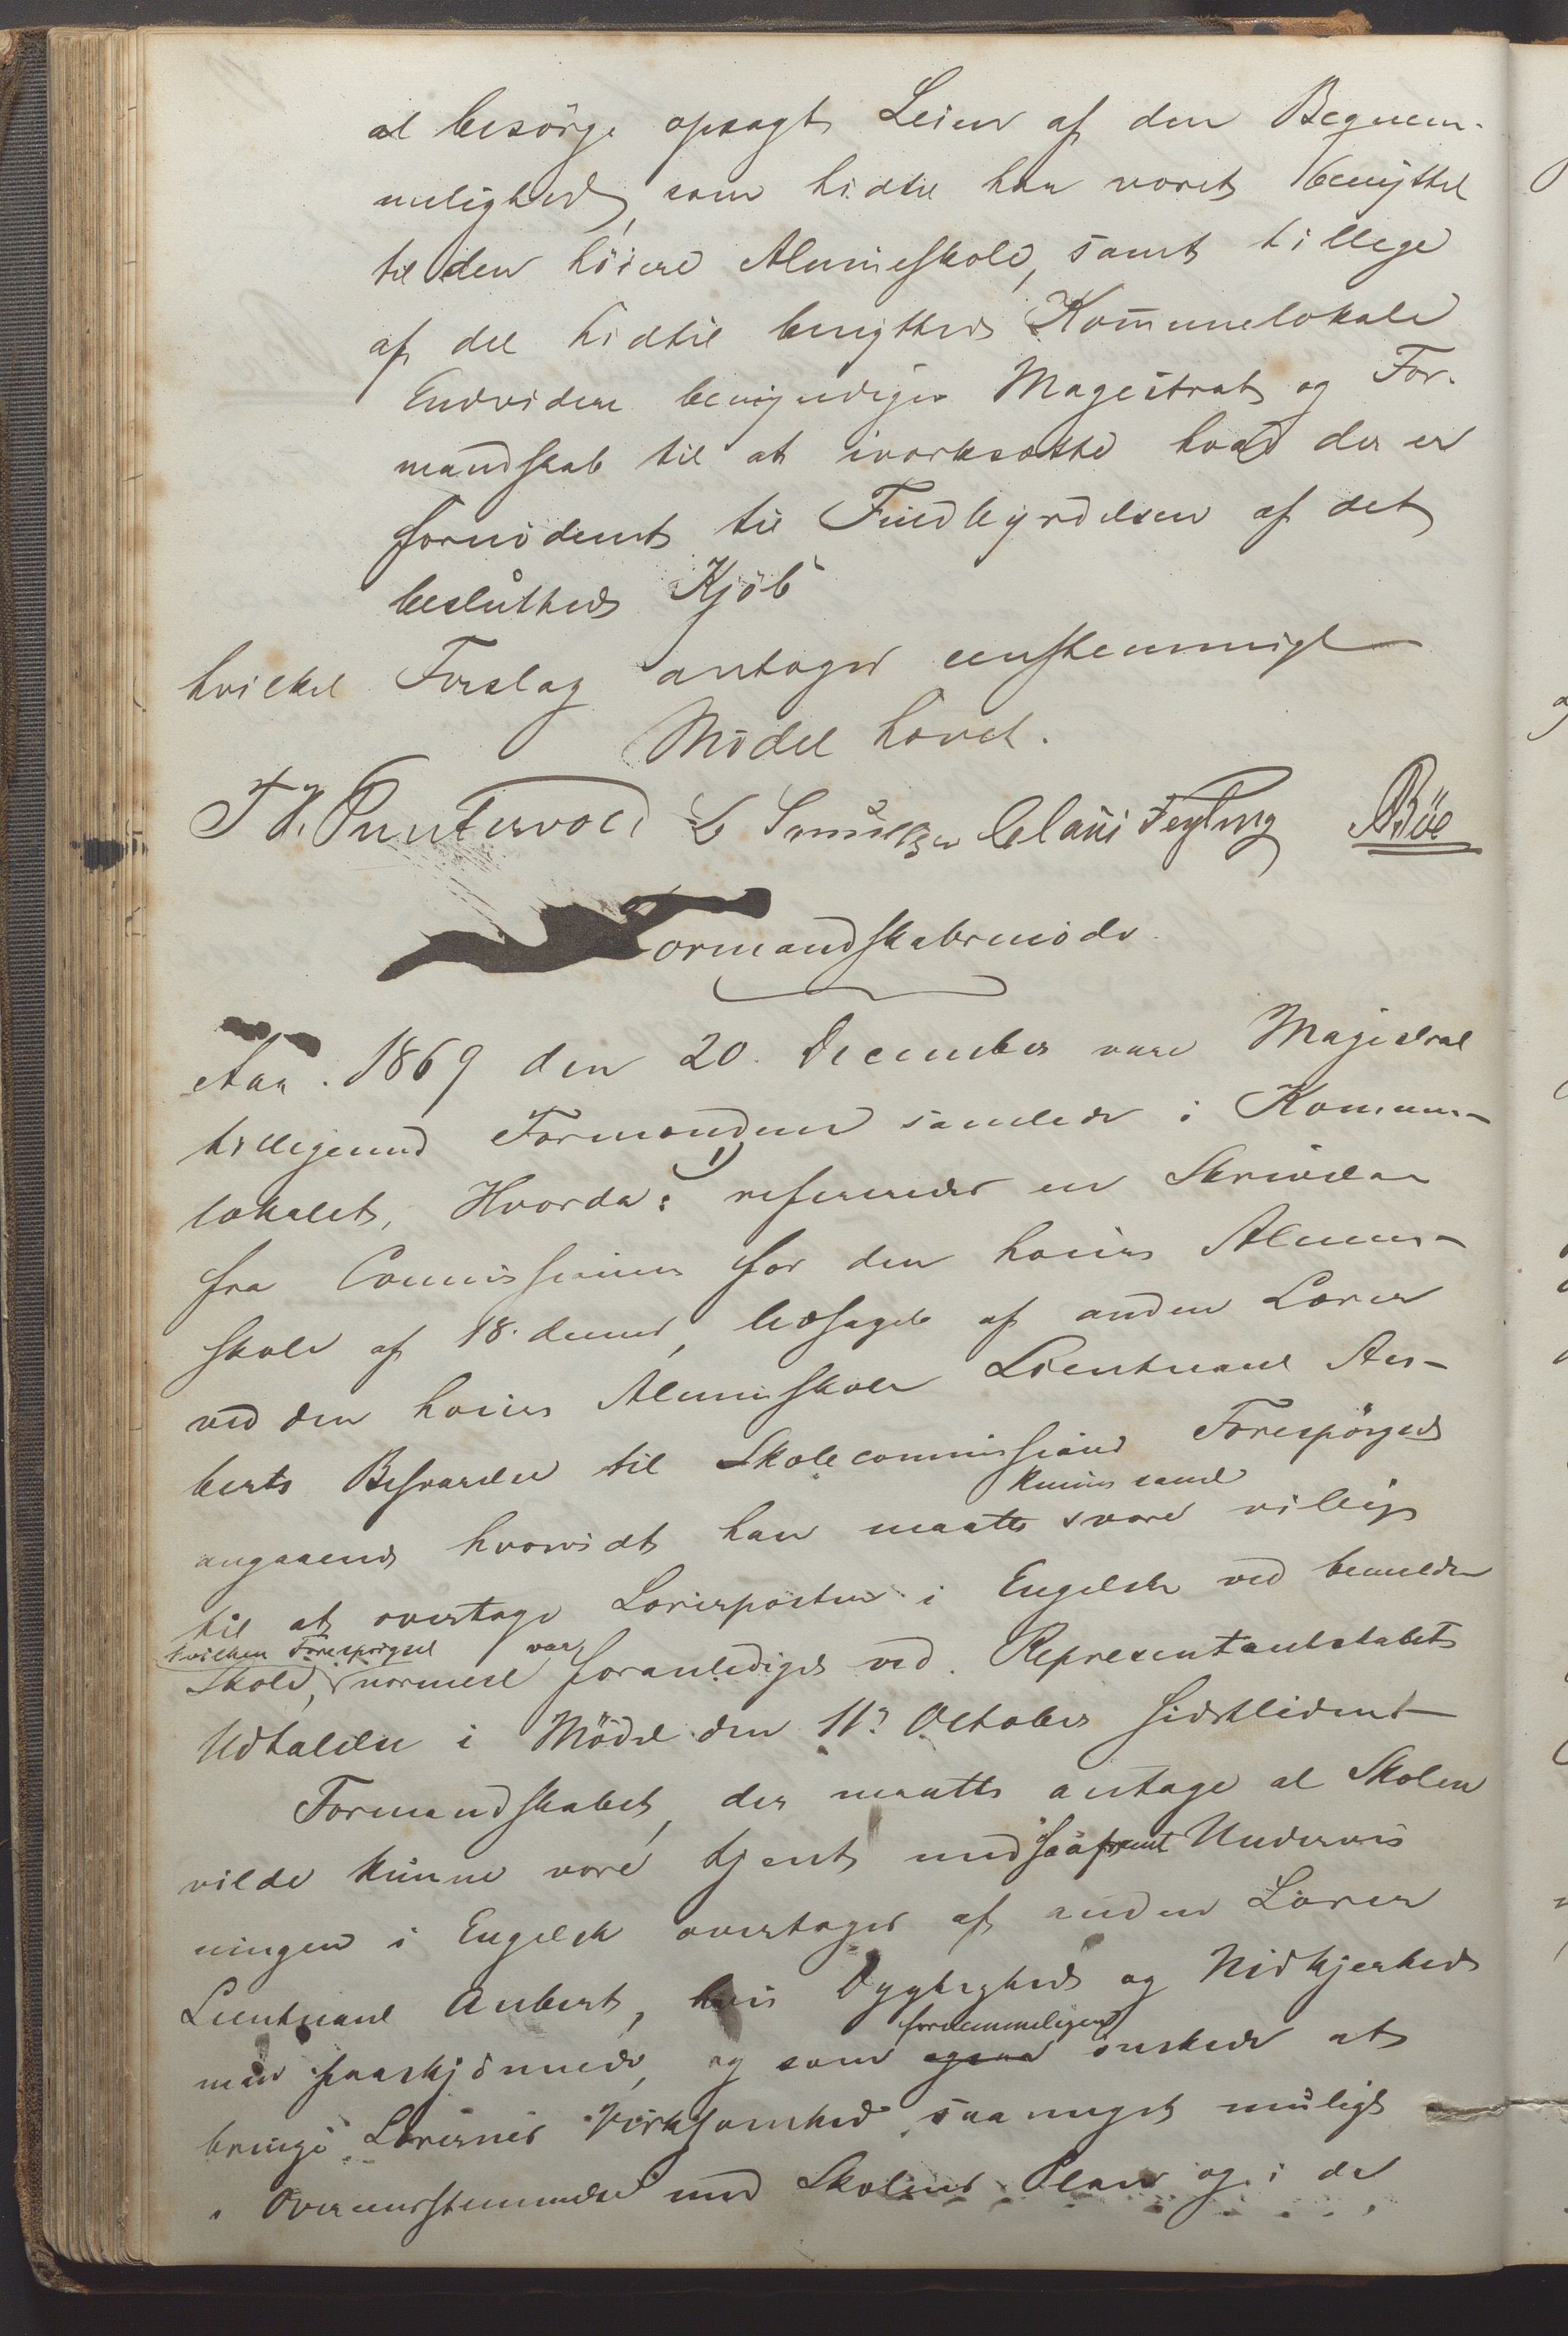 at besörge opsagt Leien af den Beqvem-
melighed, som hidtil har været benyttet
til den höiere Almueskole, samt tillige
af det hidtil benyttede Kommunelokale
Endvidere bemyndiges Magistrat og For-
mandskab til at iværksætte hvad der er
fornödent til Fuldbyrdelsen af det
besluttede Kjöb
hvilket Forslag antoges eenstemmigt
Mödet hævet.
T H. Puntervold Claus Feyling Böe
ormandskabsmöde.
Aar. 1869 den 20. December vare Magistrat
tilligemed Formændene samlede i Kommune-
lokalet, Hvorda:
1) refereredes en Skrivelse
fra Commissionen for den höiere Almue-
skole af 18. dennes, ledsaget af anden Lærer
ved den höiere Almueskole Lieutnant Au-
berts Besvarelse til Skolecommissionens Forespörgsel
angaaende hvorvidt han maatte kunne samt være villig
til at overtage Lærerposten i Engelsk ved bemeldte
Skole, hvilken Forespörgsel nærmest var foranlediget ved Repræsentantskabets
Udtalelse i Mödet den 11te October sidstleden
Formandskabet, der maatte antage at Skolen
vilde kunne være tjent med saafremt Undervis
ningen i Engelsk overtages af anden Lærer
Lieutnant Aubert, hvis Dygtighed og Nidkjerhed
man paaskjönnede, og som ogsaa fornemmeligen önskede at
bringe Lærernes Virksomhed saa meget muligt
i Overeensstemmelse med Skolens Plan og i det